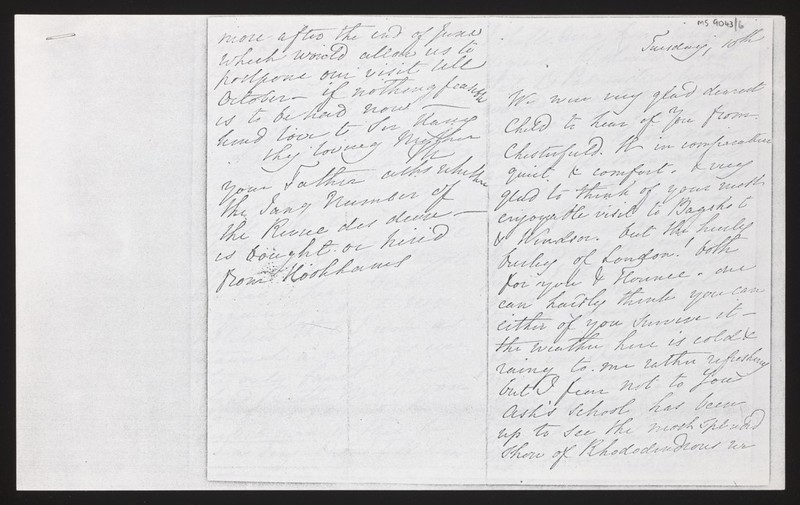 MS 9043/6
Tuesday, 10th
We were very glad dearest
Child to hear of you from
Chesterfield. St in comparative
quiet, & comfort. & very
glad to think of your most
enjoyable visit to Bagshot
& Windsor. but the hurly
burley of London! both
for you & Florence. one
can hardly think you can
either of you survive it -
the weather here is cold &
rainy to me rather refreshing
but I fear not to you
Ash's school has been
up to see the most splendid
show of Rhododendrons we
more after the end of June
which would allow us to
postpone our visit till
October - if nothing
is to be had now -
kind love to Sir Harry
thy loving Mother
your Father asks whether
the Number of
the Revue des deux -
is bought or hired
from Hookhams